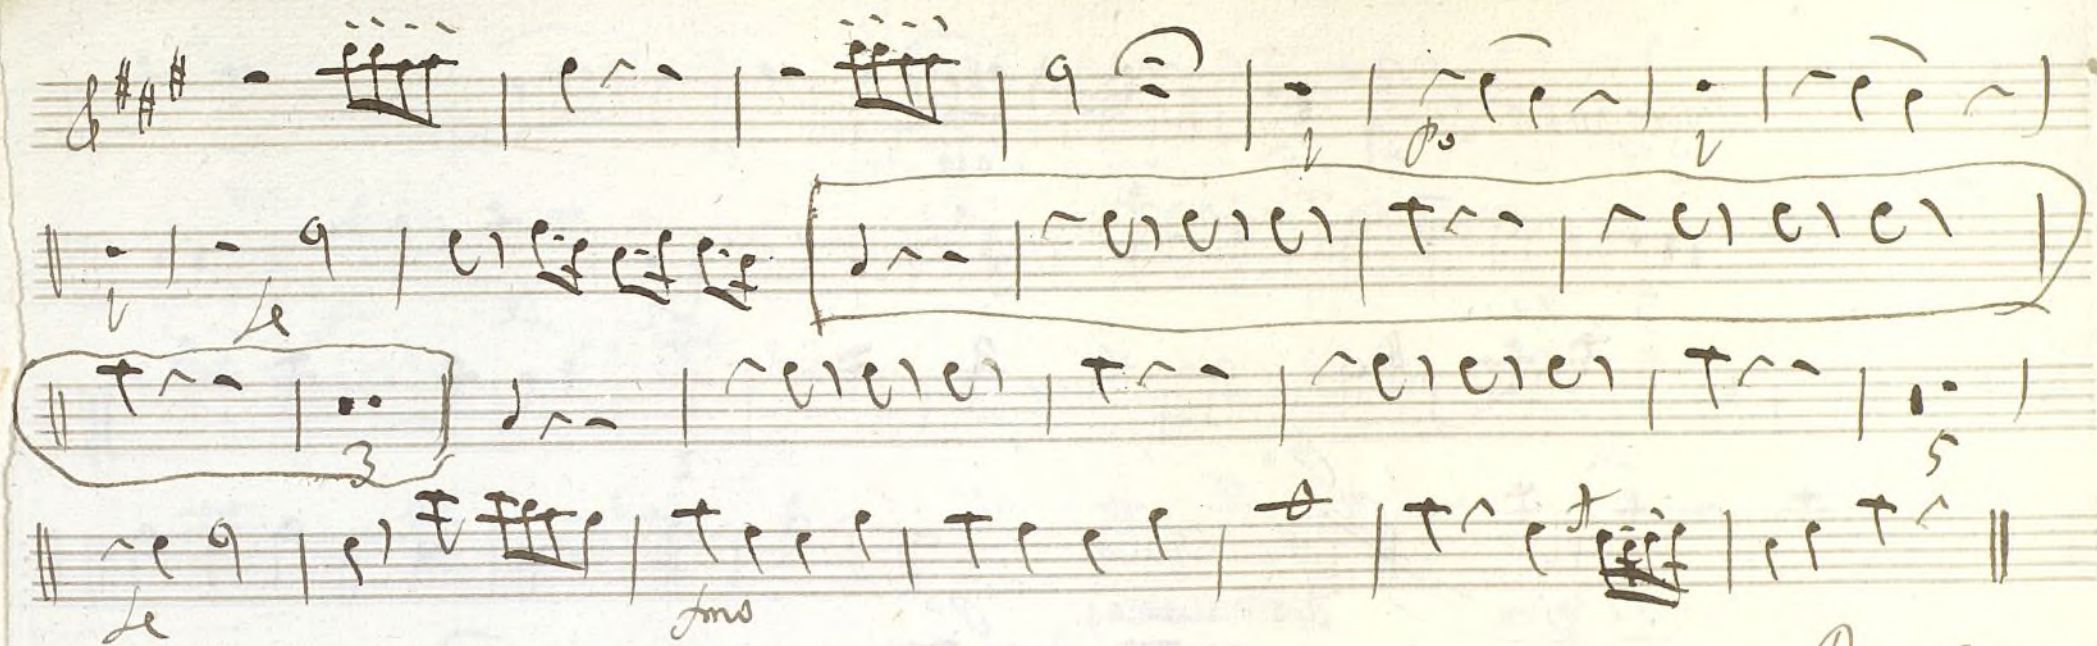 1 po 1
1 fe
3 5
fe fmo